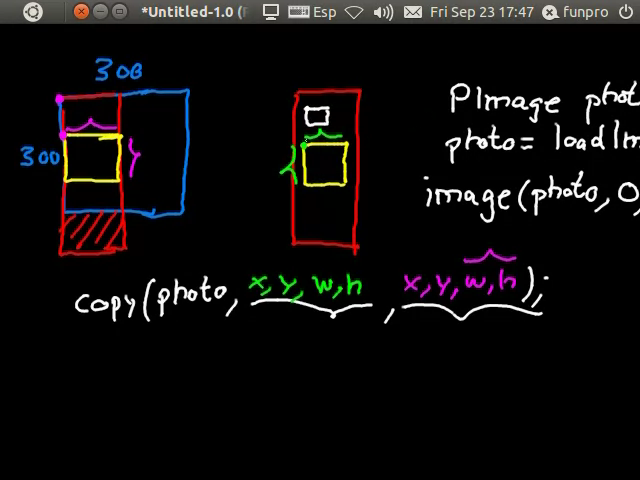 *Untitled-1.0 ( Esp Fri Sep 23 17:47 funpro
300
300
PImage phot
photo = loadIm
image(photo, 0,
copy(photo, x, y, w, h , x, y, w, h );